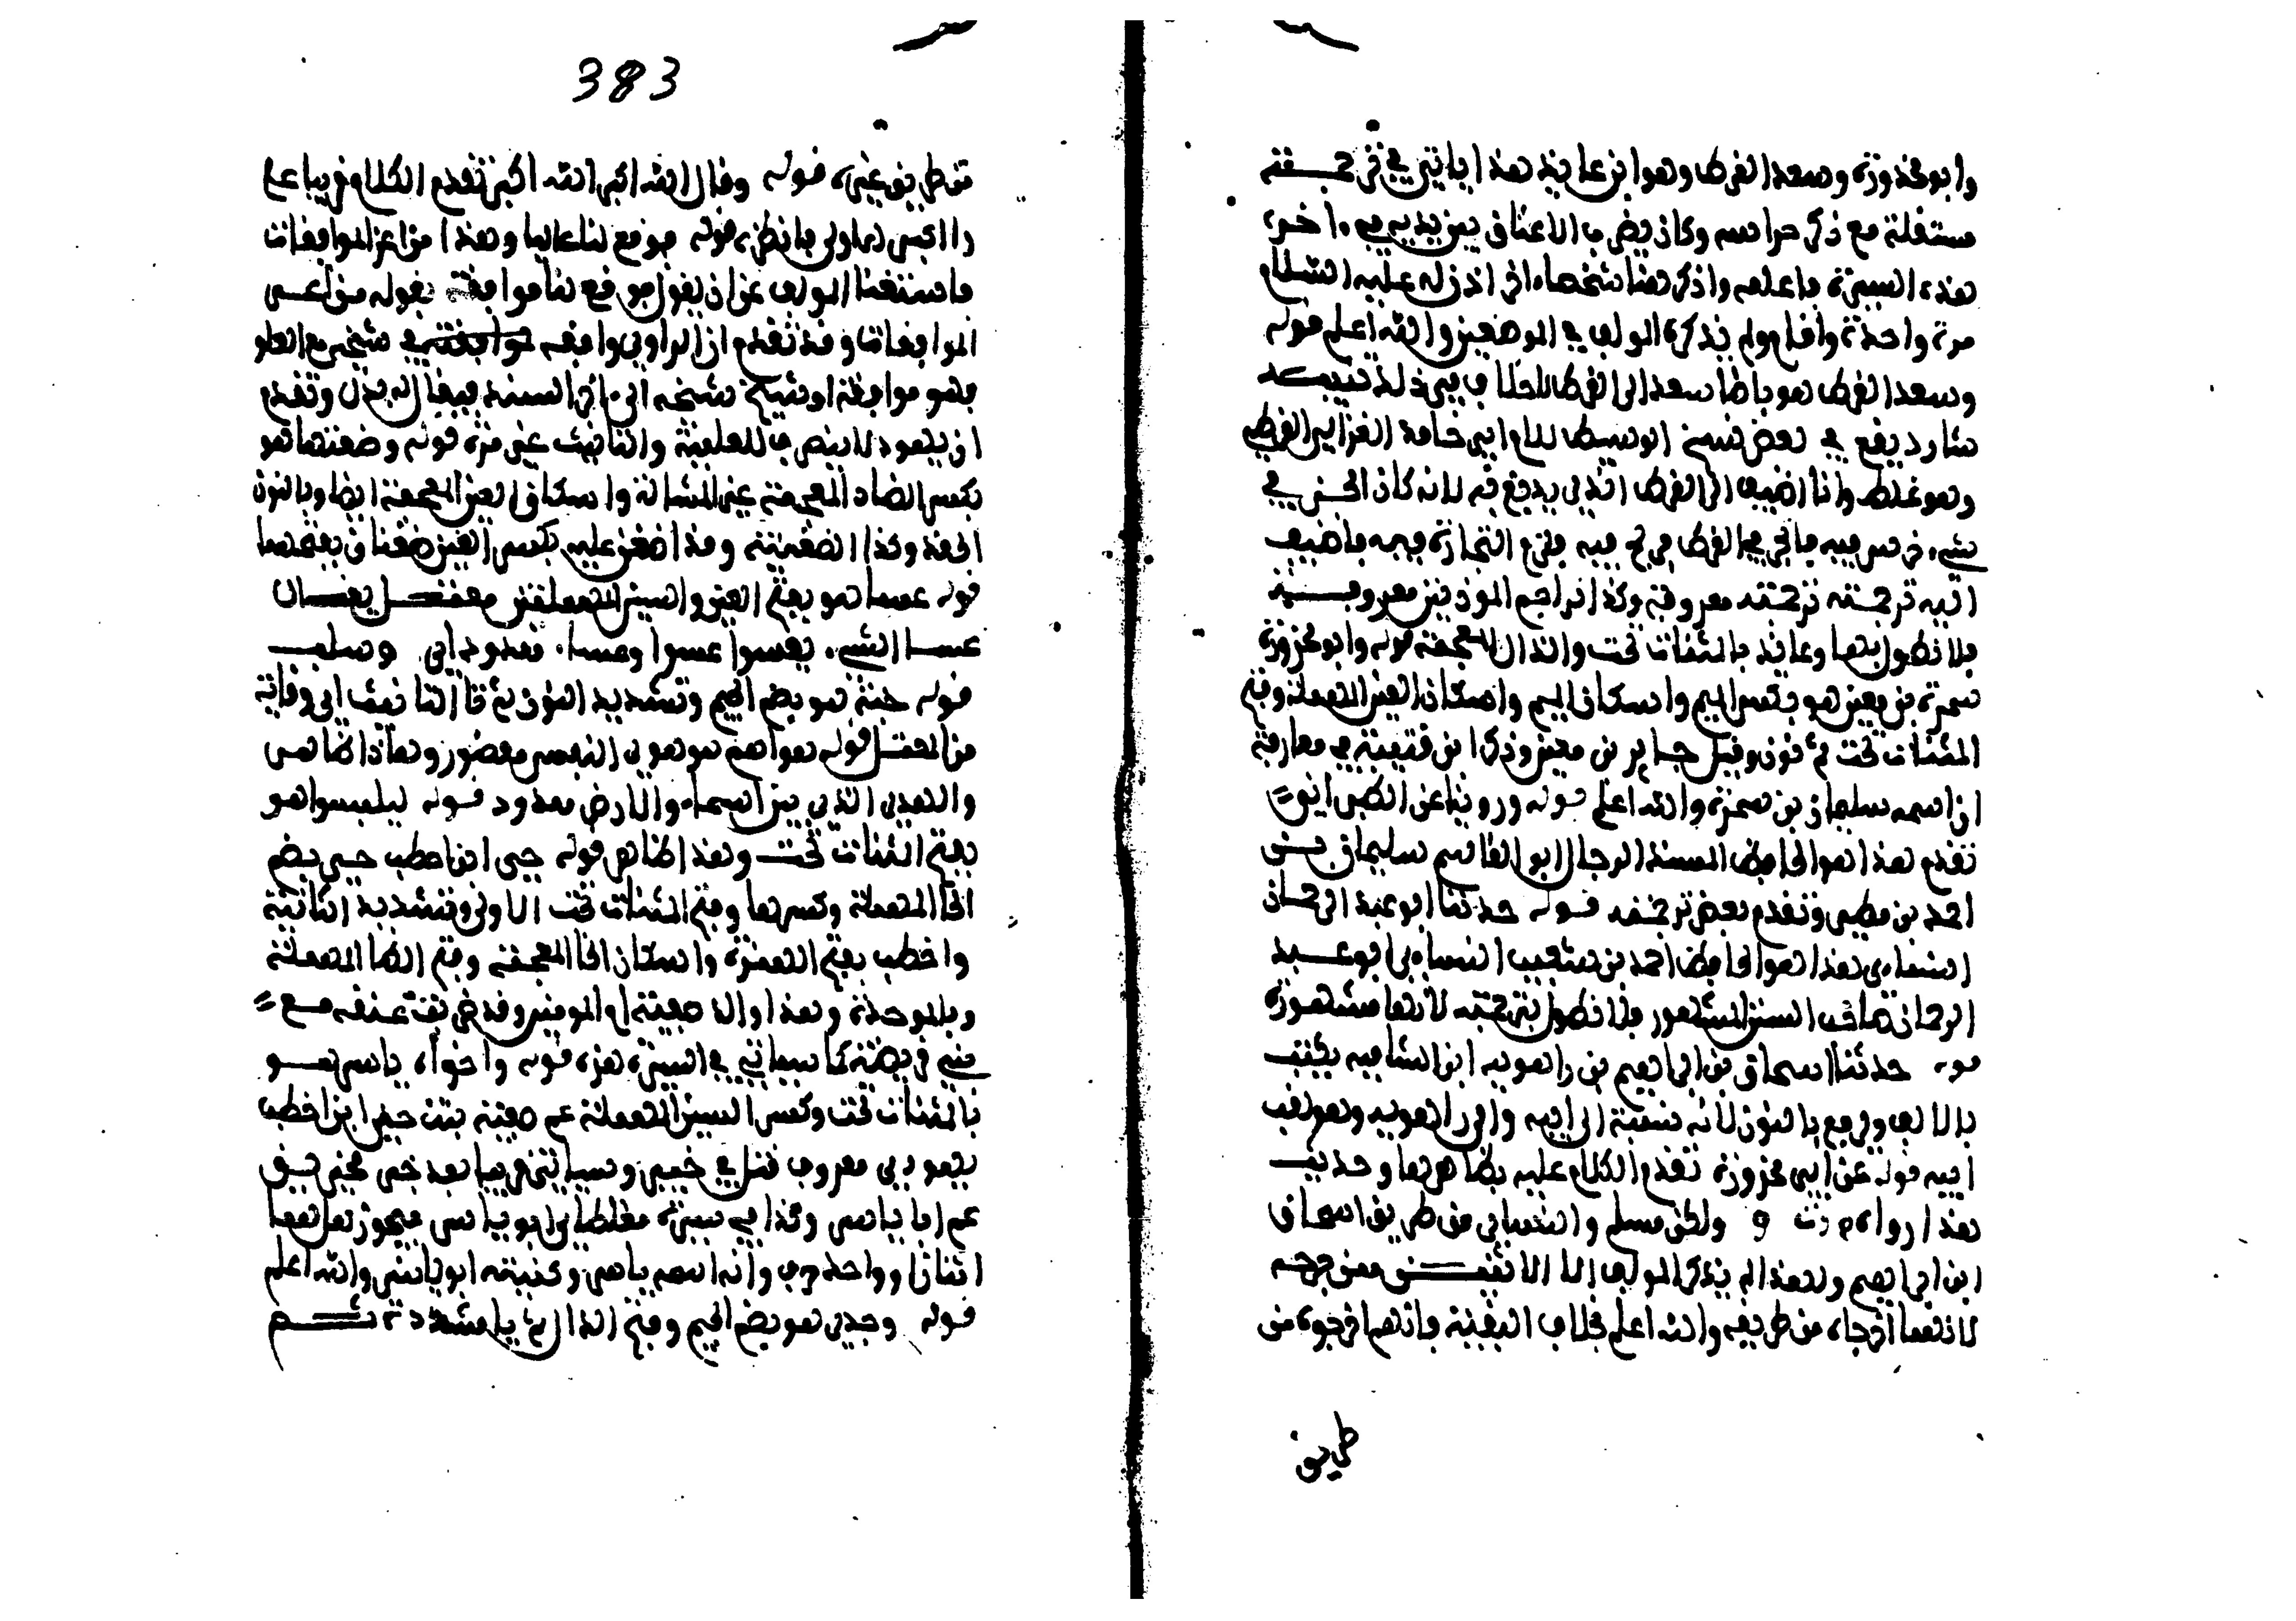 وابو محذورة وسعد القرظ وهو ابن عايذ هذا ياتي في ترجمته
مستقلة مع ذكر حراسه وكان يضرب الاعناق بين يديه في اخر
هذه السيرة فاعلمه واذكر هنا شخصا اخر اذن له عليه السلام
مرة واحدة واقام ولم يذكره المولف في الموضعين والله اعلم قوله
وسعد القرظ هو باظا سعد الى القرظ
يقع في بعض نسخ الوسيط للامام ابي حامد الغزالي القرظي
وهو غلط وانما اضيف الى القرظ الذي يدبغ به لانه كان اتجر في
شيء خسر فيه فاتجر في القرظ فربح فيه فلزم التجارة فيه فاضيف
اليه ترجمته معروفة وكذا تراجم الموذنين معروفة
فلا نطول بها وعايذ بالمثنات تحت والذال المعجمة قوله وابو محذورة
سمرة بن معين هو بكسر الميم واسكان العين المهملة وفتح
المثنات تحت ثم نون وقيل جابر بن معين وذكر ابن قتيبة في معارفه
ان اسمه سليمان بن سمرة والله اعلم قوله وروينا عن الطبراني
تقدم هذا هو الحافظ المسند الرحال ابو القاسم سليمان بن
احمد بن مطير وتقدم بعض ترجمته قوله حدثنا ابو عبد الرحمان
النساءي هذا هو الحافظ احمد بن شعيب النساءي ابو عبد
الرحمان صاحب السنن المشهور فلا نطول بترجمته لانها مشهورة
قوله حدثنا اسحاق بن ابراهيم بن راهويه ابن الثانية يكتب
بالالف ويرفع بالنون لانه نسبة الى ابيه والى راهويه وهو لقب
ابيه قوله عن ابي محذورة تقدم الكلام عليه بظاهرها وحديث
هذا رواه م د ت ولكن مسلم والنساءي من طريق اسحاق
ابن ابراهيم ولهذا لم يذكر المولف الا الاثنين ممن خرجه
لانهما اخرجاه من طريقه والله اعلم بخلاف البقية فانهم اخرجوه من
طريق
383
من طريق غيره قوله وقال الله اكبر الله اكبر تقدم الكلام قريبا على
را اكبر الاولى فانظره قوله فوقع لنا عاليا وهذا من اعز الموافقات
فاستغنا المولف عن ان يقول فوقع لنا موافقة بقوله من اعز
الموافقات وقد تقدم ان الراوي وافقه في شيخه مع العلو
فهو موافقة او شيخ شيخه الى اخر السند فيقال له بدل وتقدم
ان يهود لا ينصرف للعلمية والتانيث غير مرة قوله وضغنها هو
بكسر الضاد المعجمة غير المشالة واسكان الغين المعجمة ايضا وبالنون
الحقد وكذا الضغينة وقد اضغن عليه بكسر الغين ضغنا بفتحها
قوله عسا هو بفتح العين والسين المهملتين معتل يقال
عسا الشيء يعسوا عسوا وعساء ممدود اي وصلب
قوله جنة هو بضم الجيم وتشديد النون ثم تا التانيث اي وقاية
من القتل قوله هواهم هو هوى النفس مقصور وهذا ظاهر
والهوى الذي بين السماء والارض ممدود قوله ليلبسوا هو
بفتح المثنات تحت وهذا ظاهر قوله حيي ابن اخطب حيي بضم
الحا المهملة وكسرها وفتح المثنات تحت الاولى وتشديد الثانية
واخطب بفتح الهمزة واسكان الخا المعجمة وفتح الطا المهملة
وبالموحدة وهذا والد صفية ام المومنين وقد ضربت عنقه مع
بني قريظة كما سياتي في السيرة هذه قوله واخواه ياسر هو
بالمثنات تحت وكسر السين المهملة عم صفية بنت حيي ابن اخطب
يهودي معروف قتل في خيبر وسياتي قريبا بعد حيي
عم ابا ياسر وكذا في سيرة مغلطاي ابو ياسر فيجوز انهما
اثنان او واحد وانه اسمه ياسر وكنيته ابو ياسر والله اعلم
قوله وجدي هو بضم الجيم وفتح الدال ثم يا مشددة ثم